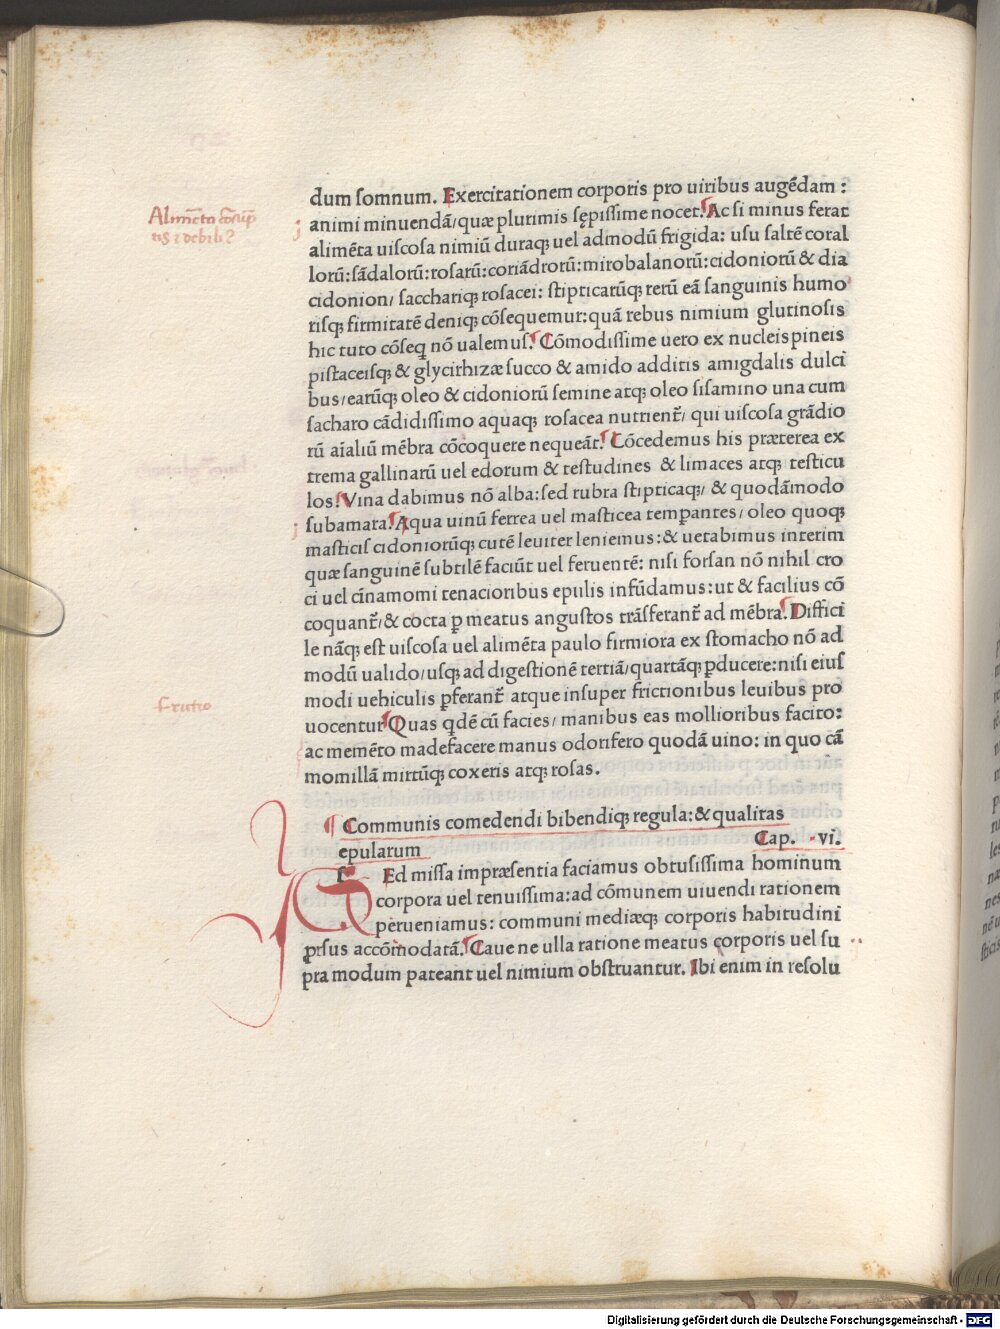 dum somnum. Exercitationem corporis pro uiribus augēdam:
Alimēta cōsūp
animi minuendā/quæ plurimis sępissime nocet. Ac si minus ferat
tis ⁊ debili?
alimēta uiscosa nimiū duraq; uel admodū frigida: usu saltē coral
lorū: sādalorū: rosarū: coriādrorū: mirobalanorū: cidoniorū & dia
cidonion/ sacchariq; rosacei: stipticarūq; rerū eā sanguinis humo
risq; firmitatē deniq; cōsequemur: quā rebus nimium glutinosis
hic tuto cōseq nō ualemus. Cōmodissime uero ex nucleis pineis
pistaceisq; & glycirhizæ succo & amido additis amigdalis dulci
bus/earūq; oleo & cidoniorū semine atq; oleo sisamino una cum
sacharo cādidissimo aquaq; rosacea nutrient̄/ qui uiscosa grādio
rū aīaliū mēbra cōcoquere nequeāt. Cōcedemus his præterea ex
trema gallinarū uel edorum & testudines & limaces atq; testicu
los. Vina dabimus nō alba: sed rubra stipticaq;/ & quodāmodo
subamara. Aqua uinū ferrea uel masticea temꝑantes/ oleo quoq;
masticis cidoniorūq; cutē leuiter leniemus: & uetabimus interim
quæ sanguinē subtilē faciūt uel feruentē: nisi forsan nō nihil cro
ci uel cīnamomi tenacioribus epulis infūdamus: ut & facilius cō
coquant̄/ & cocta ꝑ meatus angustos trāsferant̄ ad mēbra. Diffici
le nāq; est uiscosa uel alimēta paulo firmiora ex stomacho nō ad
modū ualido/usq; ad digestionē tertiā/quartāq; ꝑducere: nisi eius
modi uehiculis ꝑferant̄ atque insuper frictionibus leuibus pro
frictio
uocentur. Quas qdē cū facies/ manibus eas mollioribus facito:
ac memēto madefacere manus odorifero quodā uino: in quo cā
momillā mirtūq; coxeris atq; rosas.
Communis comedendi bibendiq; regula: & qualitas
epularum Cap. vi.
SEd missa impræsentia faciamus obtusissima hominum
corpora uel tenuissima: ad cōmunem uiuendi rationem
perueniamus: communi mediæq; corporis habitudini
ꝓrsus accōmodatā. Caue ne ulla ratione meatus corporis uel su
pra modum pateant uel nimium obstruantur. Ibi enim in resolu
Digitalisierung gefördert durch die Deutsche Forschungsgemeinschaft - DFG